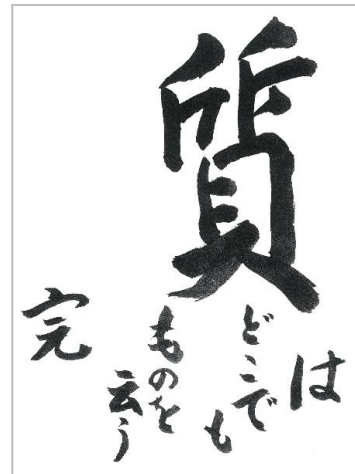 質
は
どこでも
ものを
云う
完